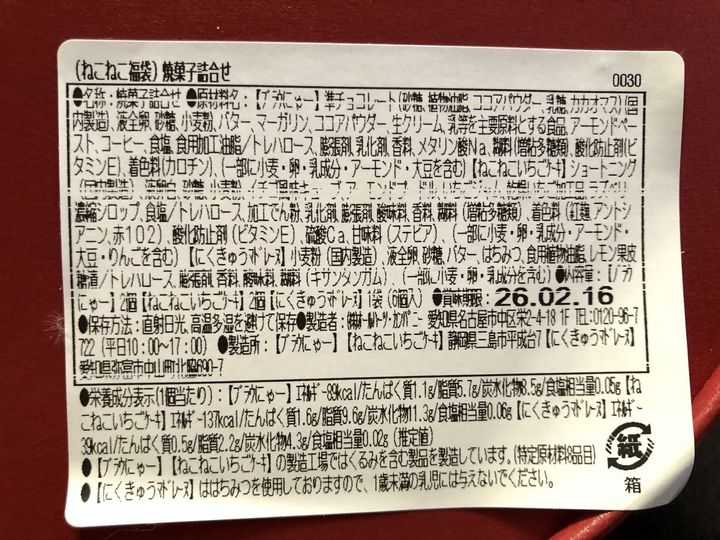 (ねこねこ福袋)焼菓子詰合せ
0030
●名称:焼菓子詰合せ●原材料名:【ブラカにゃー】準チョコレート(砂糖、植物油脂、ココアパウダー、乳糖、カカオマス)(国
内製造)、液全卵、砂糖、小麦粉、バター、マーガリン、ココアパウダー、生クリーム、乳等を主要原料とする食品、アーモンドペー
スト、コーヒー、食塩、食用加工油脂/トレハロース、膨張剤、乳化剤、香料、メタリン酸Na、糊料(増粘多糖類)、酸化防止剤(ビ
タミンE)、着色料(カロチン)、(一部に小麦・卵・乳成分・アーモンド・大豆を含む)【ねこねこいちごケーキ】ショートニング
(国内製造)、液卵白、砂糖、小麦粉、
濃縮シロップ、食塩/トレハロース、加工でん粉、乳化剤、膨張剤、酸味料、香料、糊料(増粘多糖類)、着色料(紅麹、アントシ
アニン、赤102)、酸化防止剤(ビタミンE)、硫酸Ca、甘味料(ステビア)、(一部に小麦・卵・乳成分・アーモンド・
大豆・りんごを含む)【にくきゅうマドレーヌ】小麦粉(国内製造)、液全卵、砂糖、バター、はちみつ、食用植物油脂、レモン果皮
糖漬/トレハロース、膨張剤、香料、酸味料、糊料(キサンタンガム)、(一部に小麦・卵・乳成分を含む)●内容量:【ブラカ
にゃー】2個【ねこねこいちごケーキ】2個【にくきゅうマドレーヌ】1袋(6個入)●賞味期限:26.02.16
●保存方法:直射日光、高温多湿を避けて保存●製造者:㈱オールハーツ・カンパニー 愛知県名古屋市中区栄2-4-18 1F TEL:0120-96-7
722(平日10:00~17:00)●製造所:【ブラカにゃー】【ねこねこいちごケーキ】静岡県三島市平成台7【にくきゅうマドレーヌ】
愛知県弥富市中山町北脇690-7
●栄養成分表示(1個当たり):【ブラカにゃー】エネルギー89kcal/たんぱく質1.1g/脂質5.7g/炭水化物8.5g/食塩相当量0.05g【ね
こねこいちごケーキ】エネルギー137kcal/たんぱく質1.6g/脂質9.6g/炭水化物11.3g/食塩相当量0.06g【にくきゅうマドレーヌ】エネルギー
39kcal/たんぱく質0.5g/脂質2.2g/炭水化物4.3g/食塩相当量0.02g(推定値)
●【ブラカにゃー】【ねこねこいちごケーキ】の製造工場ではくるみを含む製品を製造しています。(特定原材料8品目)
●【にくきゅうマドレーヌ】ははちみつを使用しておりますので、1歳未満の乳児には与えないでください。
紙
箱